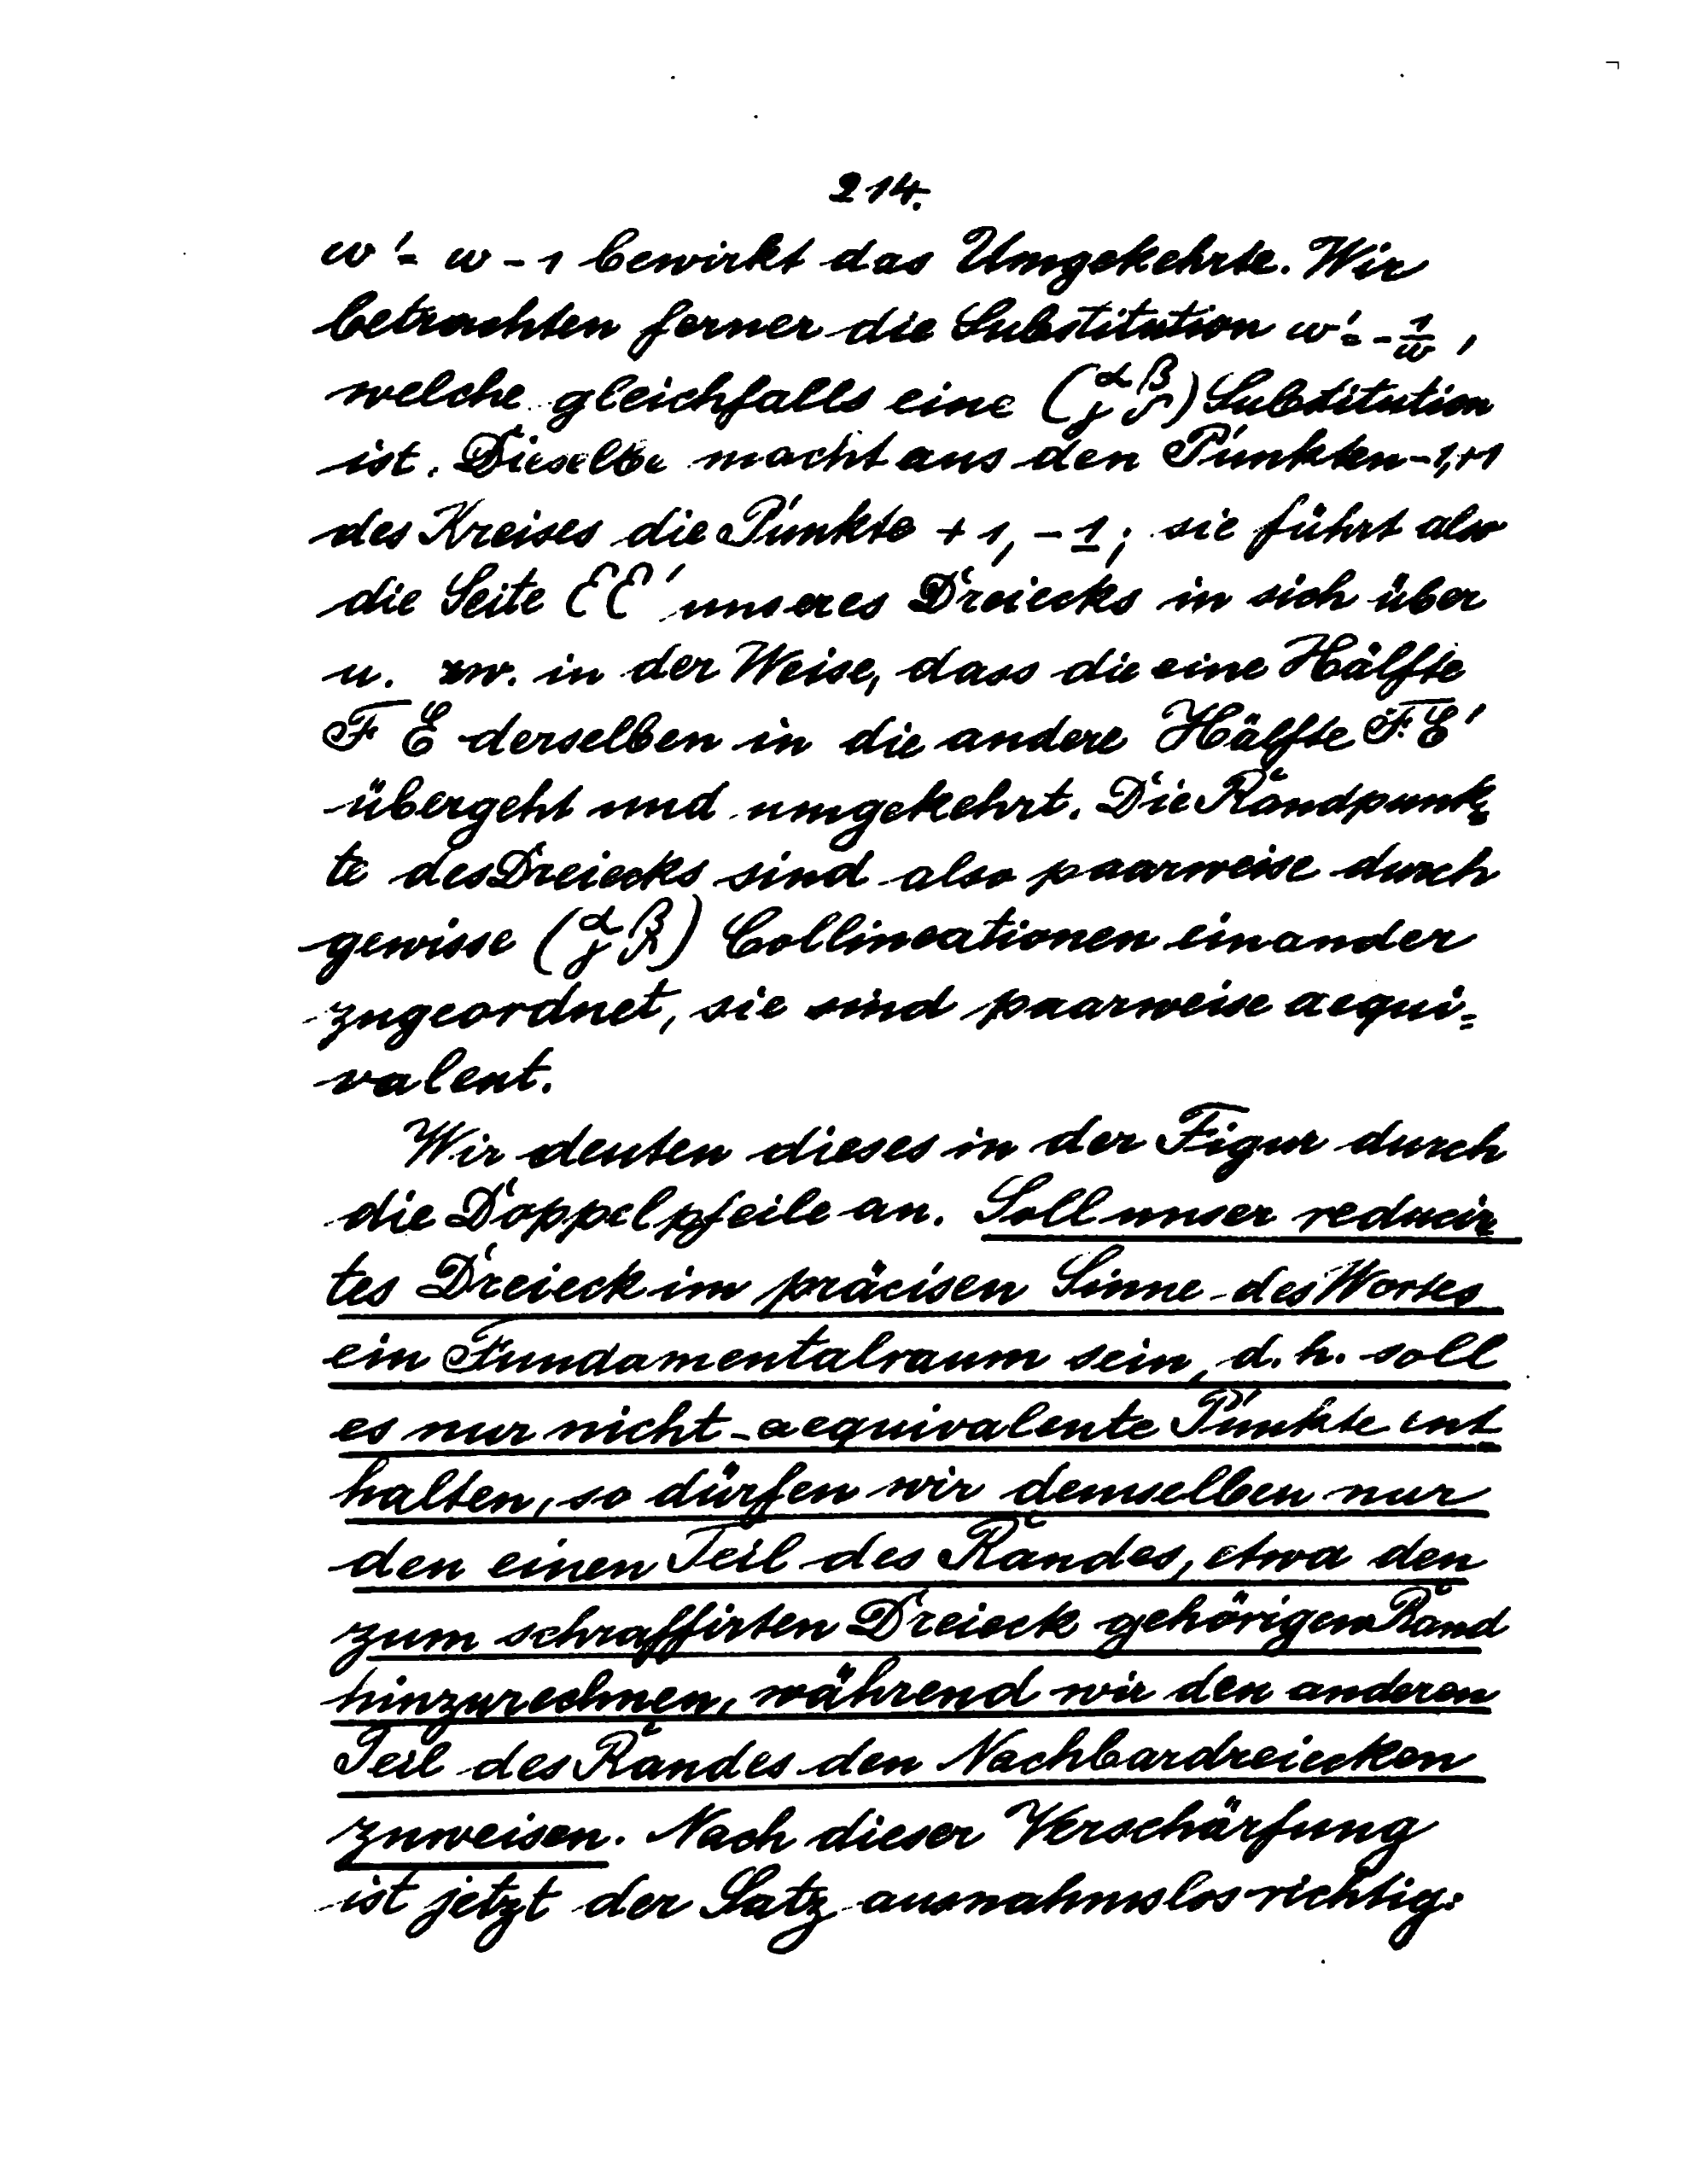 214.
ω' = ω - 1 bewirkt das Umgekehrte. Wir
betrachten ferner die Substitution ω' = - 1/ω,
welche gleichfalls eine (α β γ δ) Substitution
ist. Dieselbe macht aus den Punkten -1, +1
des Kreises die Punkte +1, -1; sie führt also
die Seite EE' unseres Dreiecks in sich über
u. zw. in der Weise, dass die eine Hälfte
F E derselben in die andere Hälfte F E'
übergeht und umgekehrt. Die Randpunk-
te des Dreiecks sind also paarweise durch
gewisse (α β γ δ) Collineationen einander
zugeordnet, sie sind paarweise aequi=
valent.
Wir deuten dieses in der Figur durch
die Doppelpfeile an. Soll unser reducir
tes Dreieck im präcisen Sinne des Wortes
ein Fundamentalraum sein, d. h. soll
es nur nicht-aequivalente Punkte ent
halten, so dürfen wir demselben nur
den einen Teil des Randes, etwa den
zum schraffirten Dreieck gehörigen Rand
hinzurechnen, während wir den anderen
Teil des Randes den Nachbardreiecken
zuweisen. Nach dieser Verschärfung
ist jetzt der Satz ausnahmslos richtig: